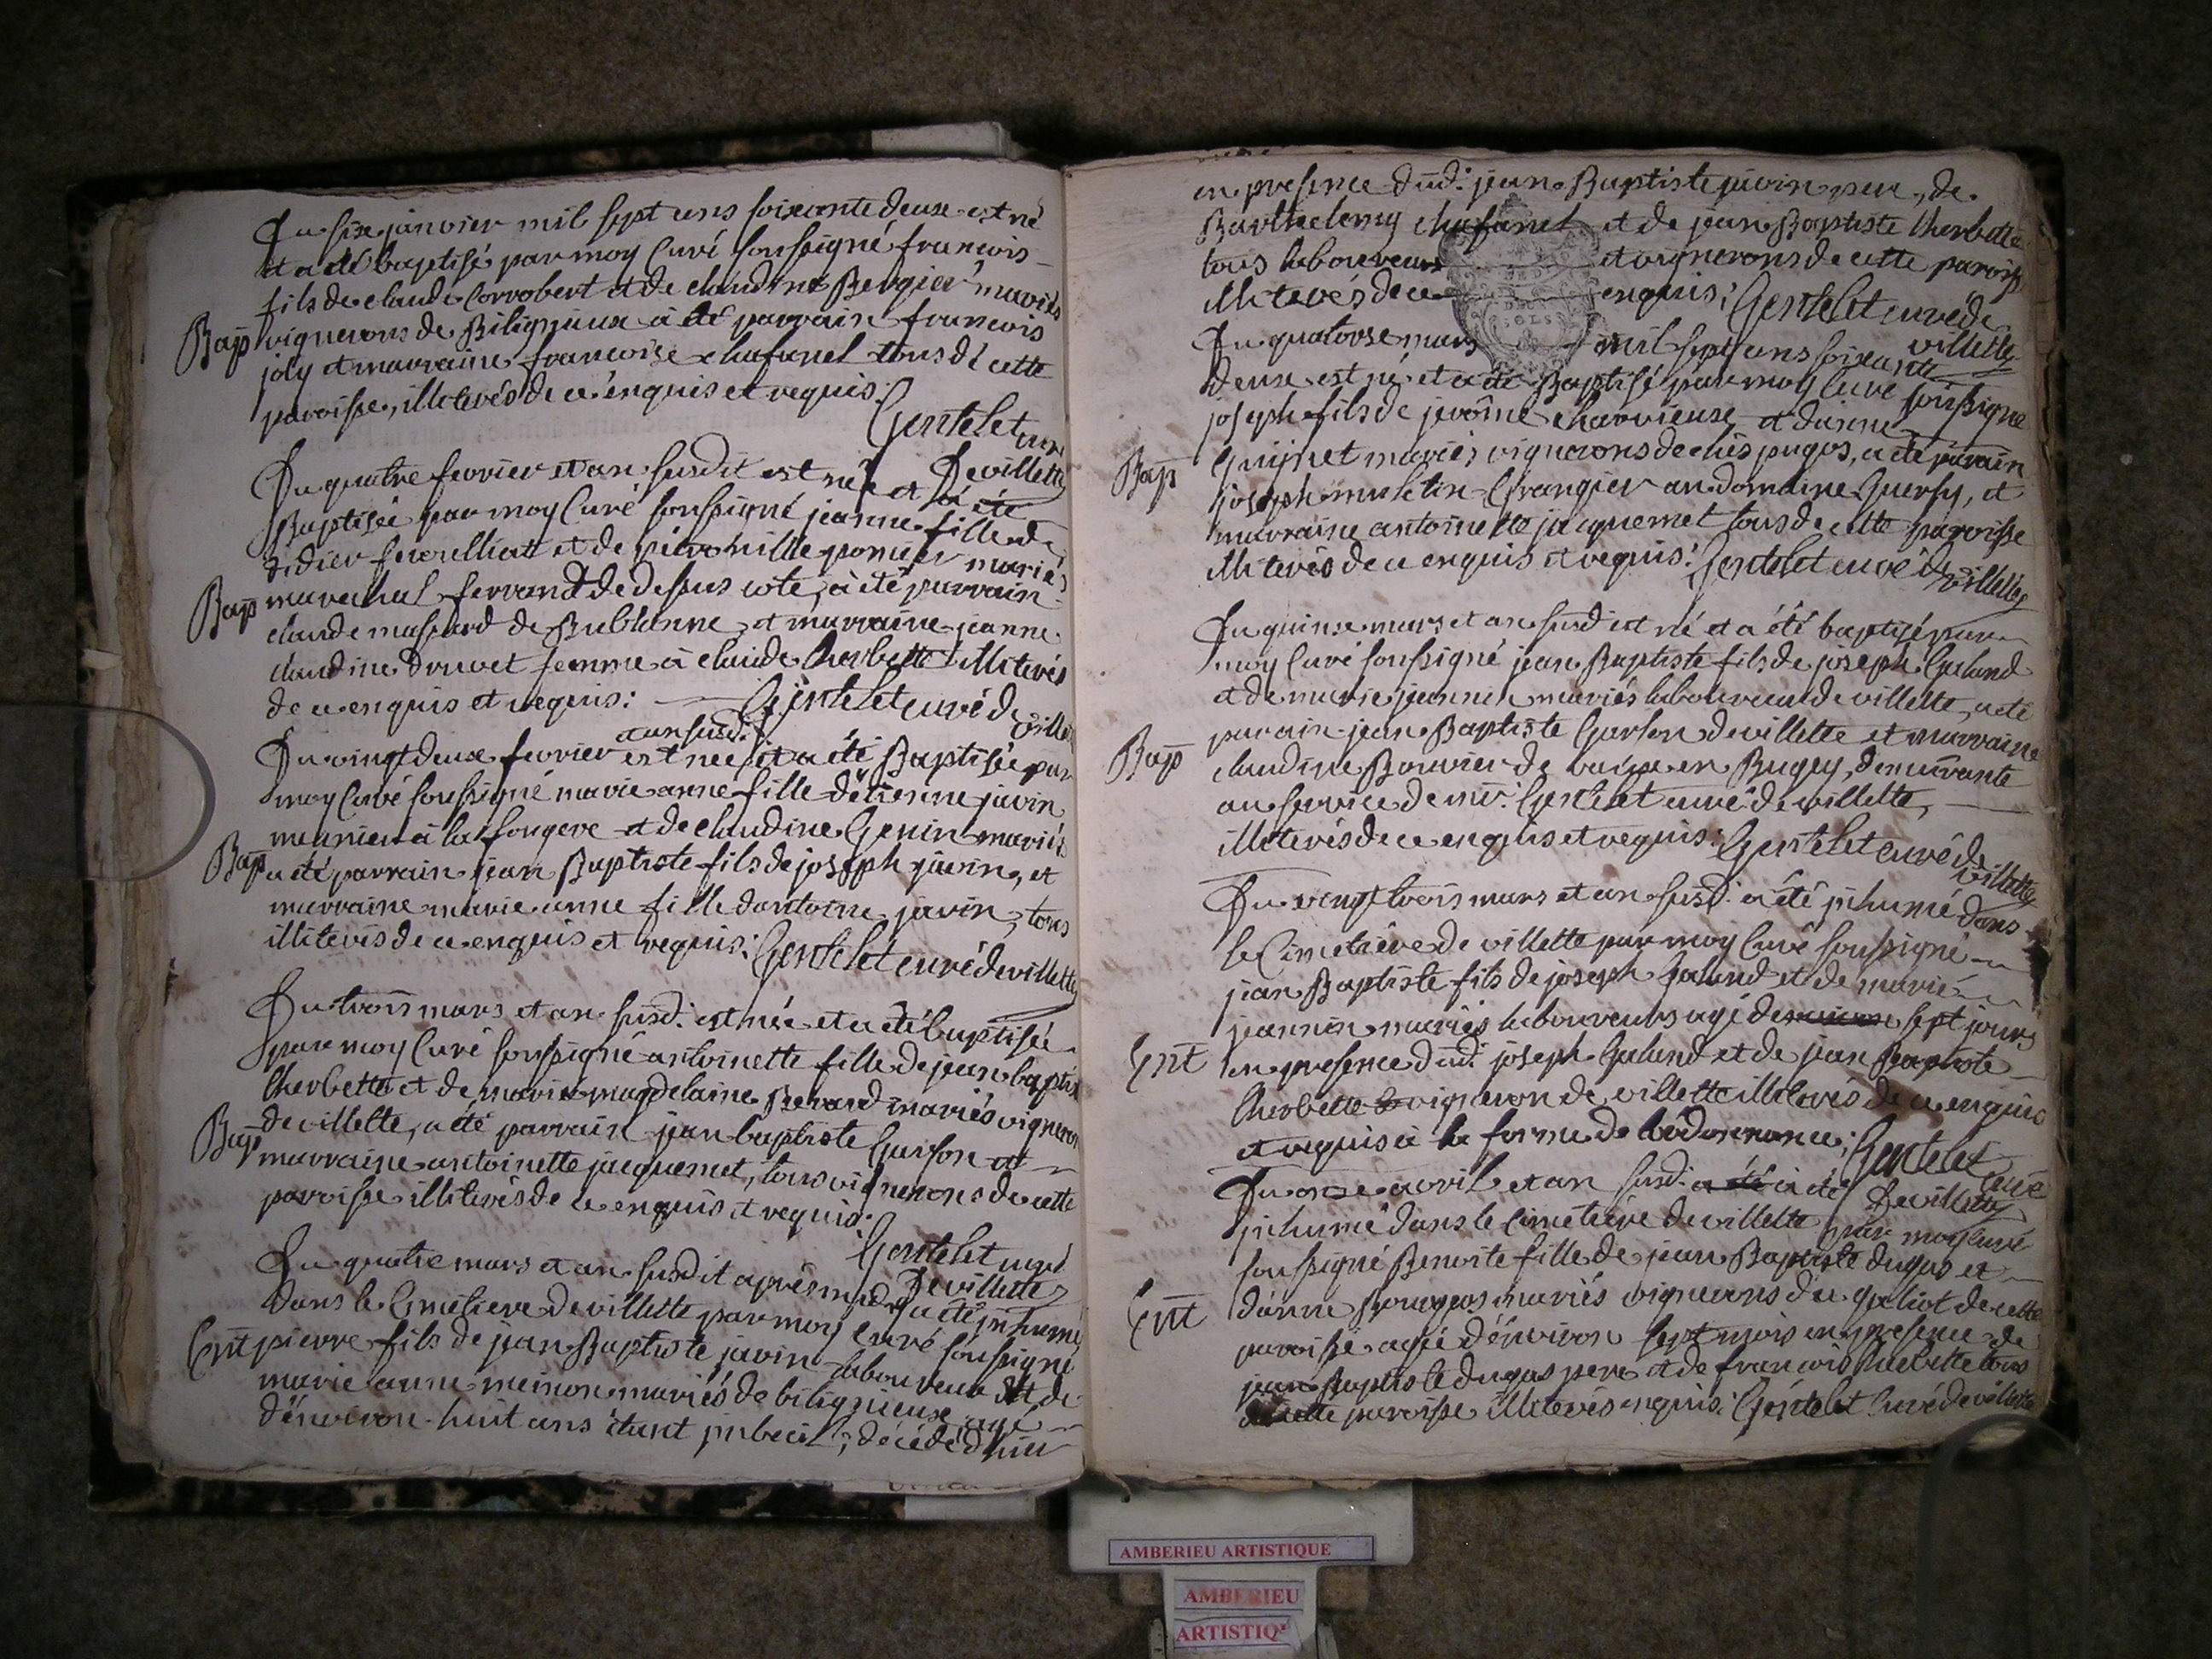 Du six janvier mil sept cens soixante deux est né
et a été baptisé par moy Curé soussigné francois
fils de claude Corrobert et de claudine Bergier mariés
Bap vignerons de Biligneux a été parrain francois
joly et marraine francoise chafanel tous de cette
paroisse, illiterés de ce enquis et requis:
Gentelet curé
De villette
Du quatre fevrier et an susdit est née et a été
Baptisée par moy Curé soussigné jeanne fille de
didier et de pierre mariés
Bap marechal ferrand de dessus cote, a été parrain
claude massard de Bublanne, et marraine jeanne
claudine drevet femme à claude Cherbette illiterés
de ce enquis et requis: Gentelet curé de villette
et an susd.
Du vingt deux fevrier est née et a été Baptisée par
moy Curé soussigné marie anne fille détienne javin
meunier à la fougere et de claudine Genin mariés
Bap a été parrain jean Baptiste fils de joseph javin, et
marraine marie anne fille dantoine javin, tous
illiterés de ce enquis et requis: Gentelet curé de villette
Du trois mars et an susd. est née et a été baptisée
par moy Curé soussigné antoinette fille de jean baptiste
Cherbette et de marie magdelaine Berard mariés vignerons
Bap de villette, a été parrain jean baptiste Garson et
marraine antoinette jacquemet, tous vignerons de cette
paroisse illiterés de ce enquis et requis:
Gentelet curé
De villette
Du quatre mars et an susdit après midy a été inhumé
dans le Cimetiere de villette par moy curé soussigné
Ent pierre fils de jean Baptiste javin laboureur et de
marie anne meinon mariés de biligneux agé
dénviron huit ans étant imbecil, decédé d'hier
en presence dud. jean Baptiste javin pere, de
Barthelemy chafanel et de jean Baptiste Cherbette
tous laboureurs et vignerons de cette paroisse
illiterés de ce enquis; Gentelet curé de
villette
Du quatorse mars mil sept cens soixante
deux est né et a été Baptisé par moy Curé soussigné
joseph fils de jerôme charvieux et danne
Bap Guignet mariés vignerons de chés pugos, a été parrain
joseph muletin Grangier au domaine Guersy, et
marraine antoinette jacquemet tous de cette paroisse
illiterés de ce enquis et requis: Gentelet curé de villette
Du quinse mars et an susd. est né et a été baptisé par
moy Curé soussigné jean Baptiste fils de joseph Galand
et de marie jeannin mariés laboureurs de villette, a été
parain jean Baptiste Garson de villette et marraine
Bap claudine Bouvier de en Bugey, demeurante
au service de mr. Gentelet curé de villette,
illiterés de ce enquis et requis: Gentelet curé de villette
Du vingt trois mars et an susd. a été inhumé dans
le Cimetiére de villette par moy Curé soussigné
jean Baptiste fils de joseph Galand et de marie
jeannin mariés laboureurs agé de sept jours
Ent en presence dud. joseph Galand et de jean Baptiste
Cherbette vigneron de villette illiterés de ce enquis
et requis à la forme de l'ordonnance; Gentelet curé
De villette
Du onze avril et an susd. a été a été
inhumé dans le Cimetiére de villette par moy curé
soussigné Benoite fille de jean Baptiste dugas et
Ent danne Bourgeos mariés vignerons du de cette
paroisse agée dénviron sept mois en presence de
jean Baptiste dugas pere et de francois Cherbette tous
de cette paroisse illiterés enquis: Gentelet Curé de villette
AMBERIEU ARTISTIQUE
AMBERIEU
ARTISTIQ